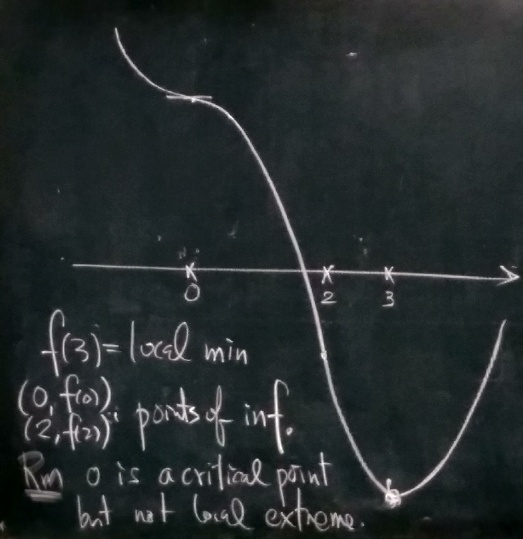 0
2
3
f(3) = local min
(0, f(0))
(2, f(2)) : points of inf.
Rm 0 is a critical point
but not local extreme.